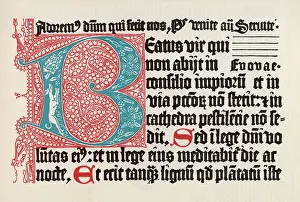 Adorem⁹ dūm qui fecit nos, Ps̄ venite añ Seruite.
Beatus vir qui
non abijt in Evovae
consilio impiorū et in
via pctoꝝ nō stetit: ⁊ in
cathedra pestilēcie nō se-
dit, Sed i lege dm̄i vo
lūtas ei⁹: et in lege eius meditabit̄ die ac
nocte, Et erit tanqꝫ lignū qd̄ plātatū iste